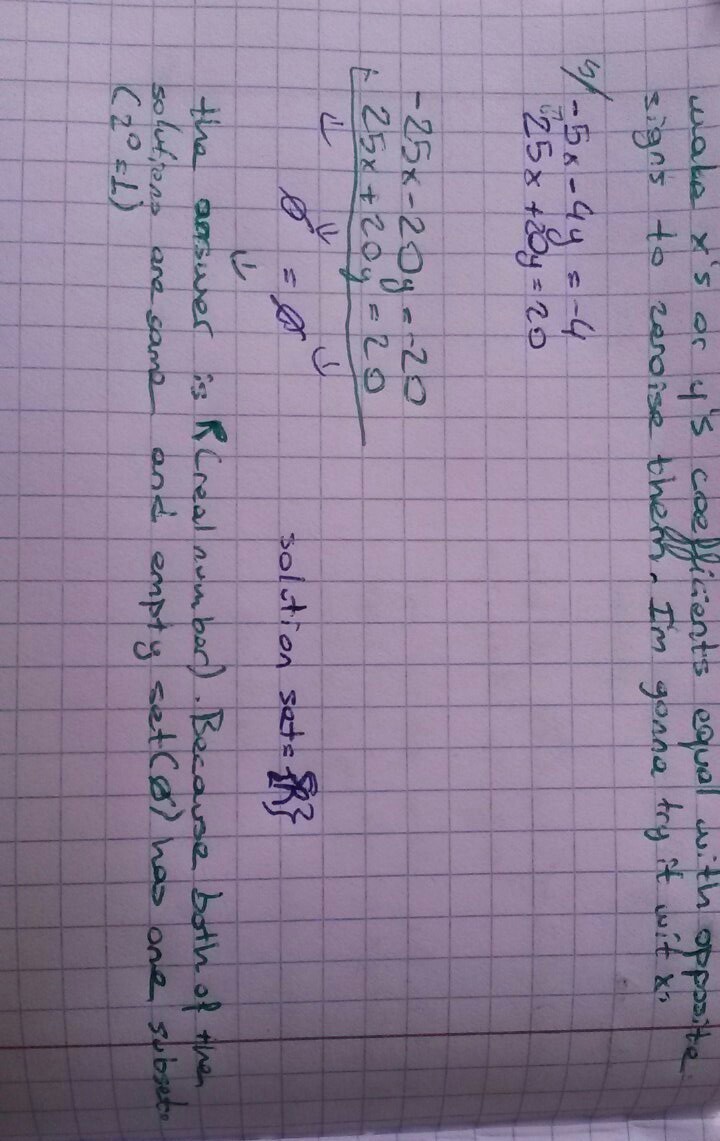 make x's or y's coefficients equal with opposite
signs to zeroise them. Im gonna try it wit x,
5/ -5x - 4y = -4
25x + 20y = 20
-25x - 20y = -20
+ 25x + 20y = 20
∅ = ∅
solution set = {R}
the answer is R (real number). Because both of then
solutions are same and empty set (∅) has one subset.
(2⁰ = 1)